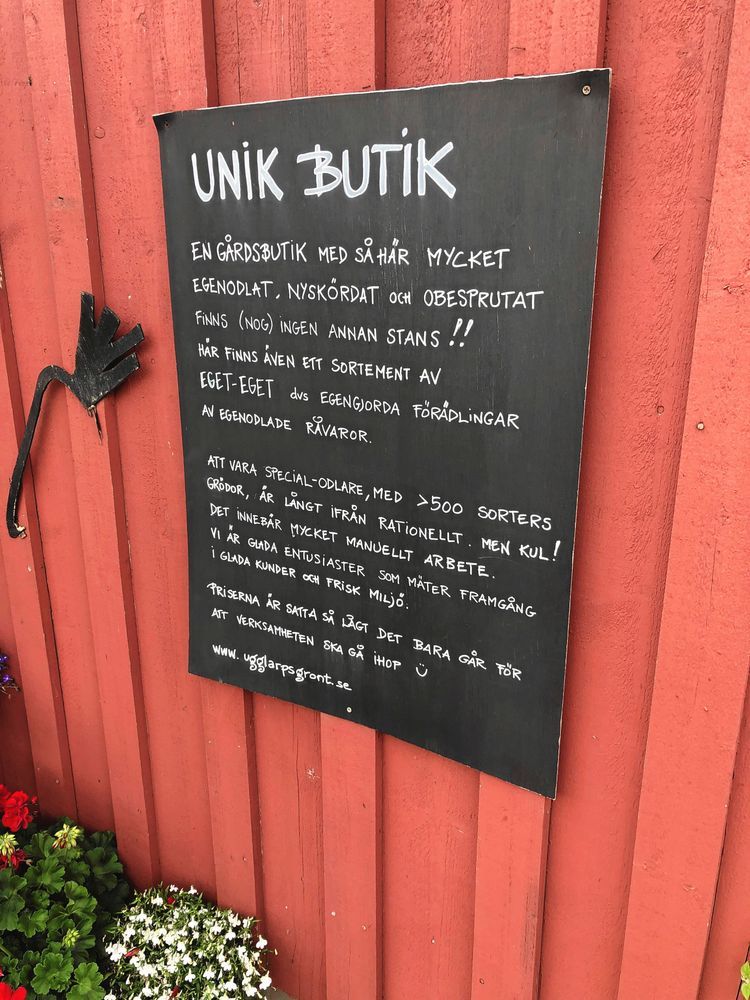 UNIK BUTIK
EN GÅRDSBUTIK MED SÅ HÄR MYCKET
EGENODLAT, NYSKÖRDAT och OBESPRUTAT
FINNS (NOG) INGEN ANNAN STANS !!
HÄR FINNS ÄVEN ETT SORTEMENT AV
EGET-EGET dvs EGENGJORDA FÖRÄDLINGAR
AV EGENODLADE RÅVAROR.
ATT VARA SPECIAL-ODLARE, MED >500 SORTERS
GRÖDOR, ÄR LÅNGT IFRÅN RATIONELLT. MEN KUL!
DET INNEBÄR MYCKET MANUELLT ARBETE.
VI ÄR GLADA ENTUSIASTER SOM MÄTER FRAMGÅNG
I GLADA KUNDER OCH FRISK MILJÖ.
PRISERNA ÄR SATTA SÅ LÅGT DET BARA GÅR FÖR
ATT VERKSAMHETEN SKA GÅ IHOP Ü
www.ugglarpsgront.se